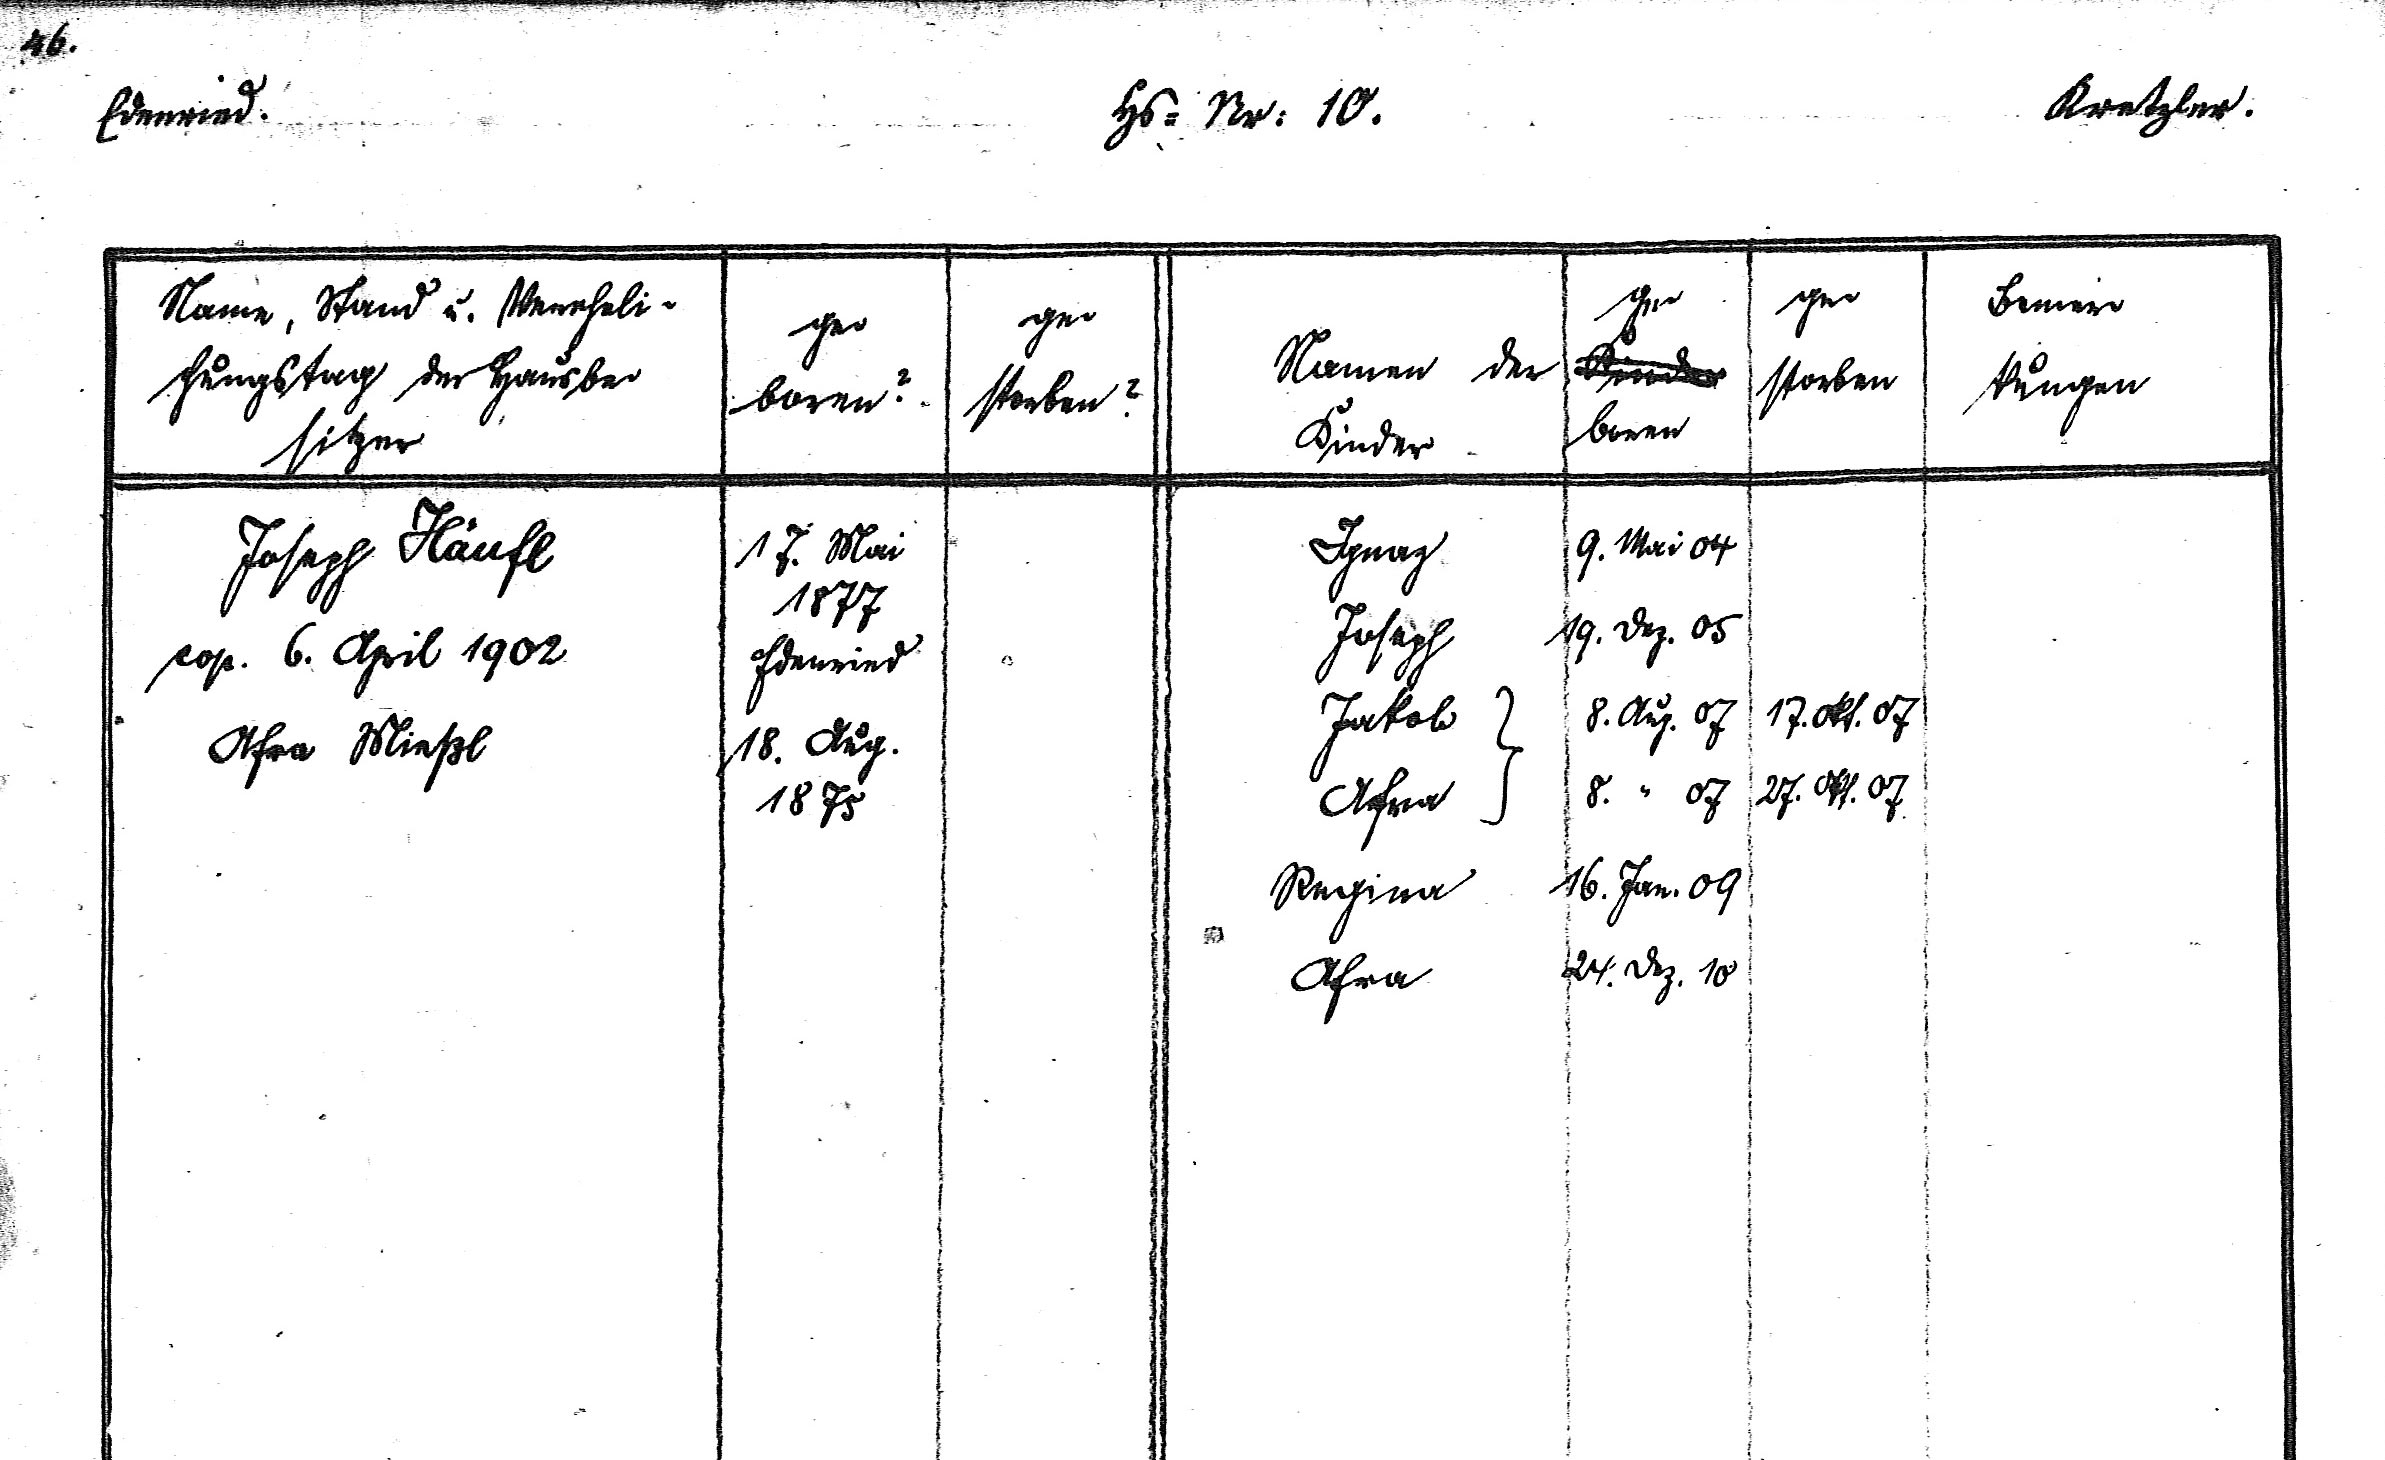 46.
Edenried. Hs= Nr: 10. Kretzler.
Name, Stand u. Vereheli-
chungstag der Hausbe-
sitzer
ge-
boren?
ge-
storben?
Namen der
Kinder
ge-
Kinder
boren
ge-
storben
Bemer-
kungen
Joseph Häufl
cop. 6. April 1902
Afra Mießl
17. Mai
1877
Edenried
18. Aug.
1875
Ignaz 9. Mai 04
Joseph 19. Dez. 05
Jakob 8. Aug. 07 17. Okt. 07
Afra 8. " 07 27. Okt. 07
Regina 16. Jan. 09
Afra 24. Dez. 10